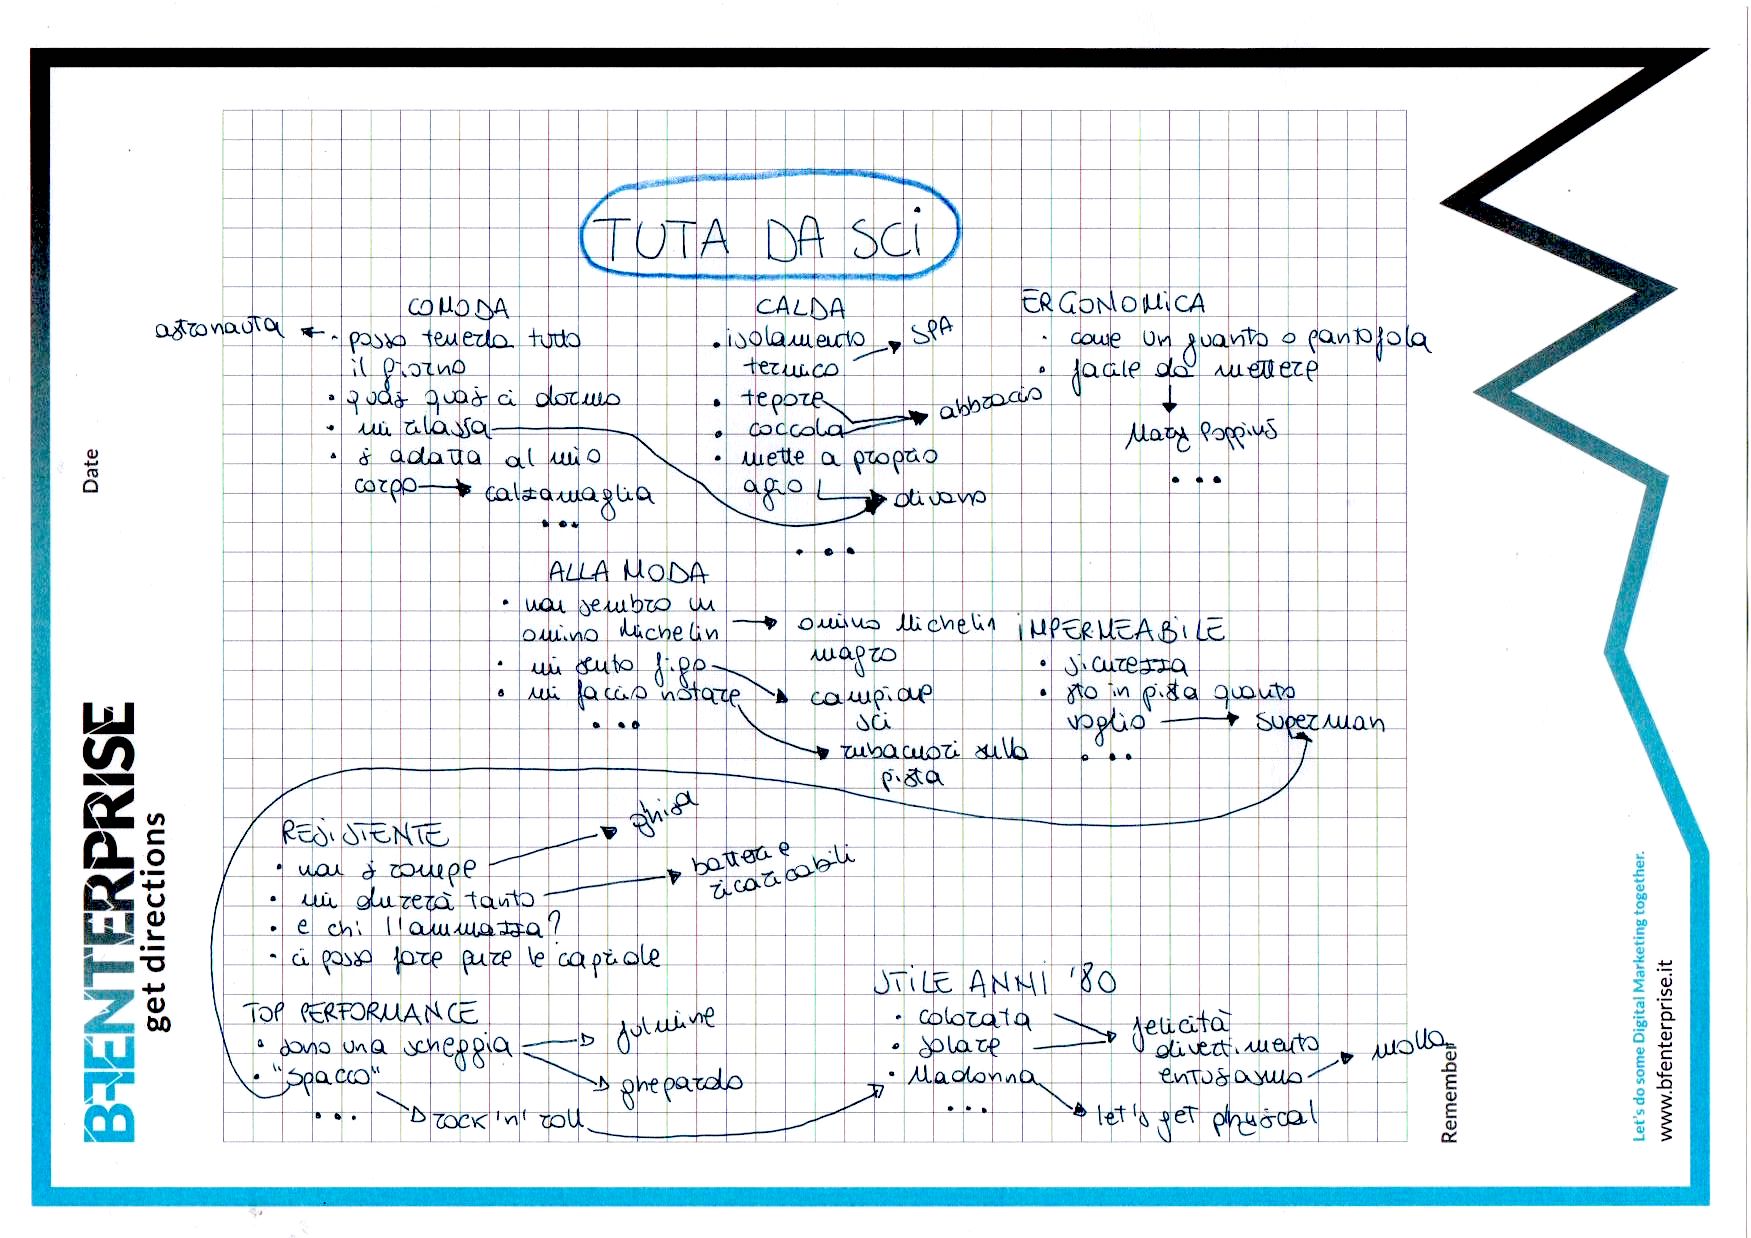 TUTA DA SCI
COMODA
astronauta ← · posso tenerla tutto
il giorno
· quasi quasi ci dormo
· mi rilassa
· si adatta al mio
corpo → calzamaglia
...
CALDA
· isolamento → SPA
termico
· tepore → abbraccio
· coccola
· mette a proprio
agio → divano
...
ERGONOMICA
· come un guanto o pantofola
· facile da mettere
↓
Mary Poppins
...
ALLA MODA
· non sembro un
omino Michelin → omino Michelin
magro
· mi sento figo → campione
sci
· mi faccio notare → rubacuori sulla
pista
...
IMPERMEABILE
· sicurezza
· sto in pista quanto
voglio → superman
...
RESISTENTE
· non si rompe → ghisa
· mi durerà tanto → batterie
ricaricabili
· e chi l'ammazza?
· ci posso fare pure le capriole
TOP PERFORMANCE
· sono una scheggia → fulmine
→ ghepardo
· "spacco"
→ rock 'n' roll
...
STILE ANNI '80
· colorata → felicità
· solare → divertimento
entusiasmo → molla
· Madonna → let's get physical
...
Date
BFENTERPRISE
get directions
Remember
Let's do some Digital Marketing together.
www.bfenterprise.it